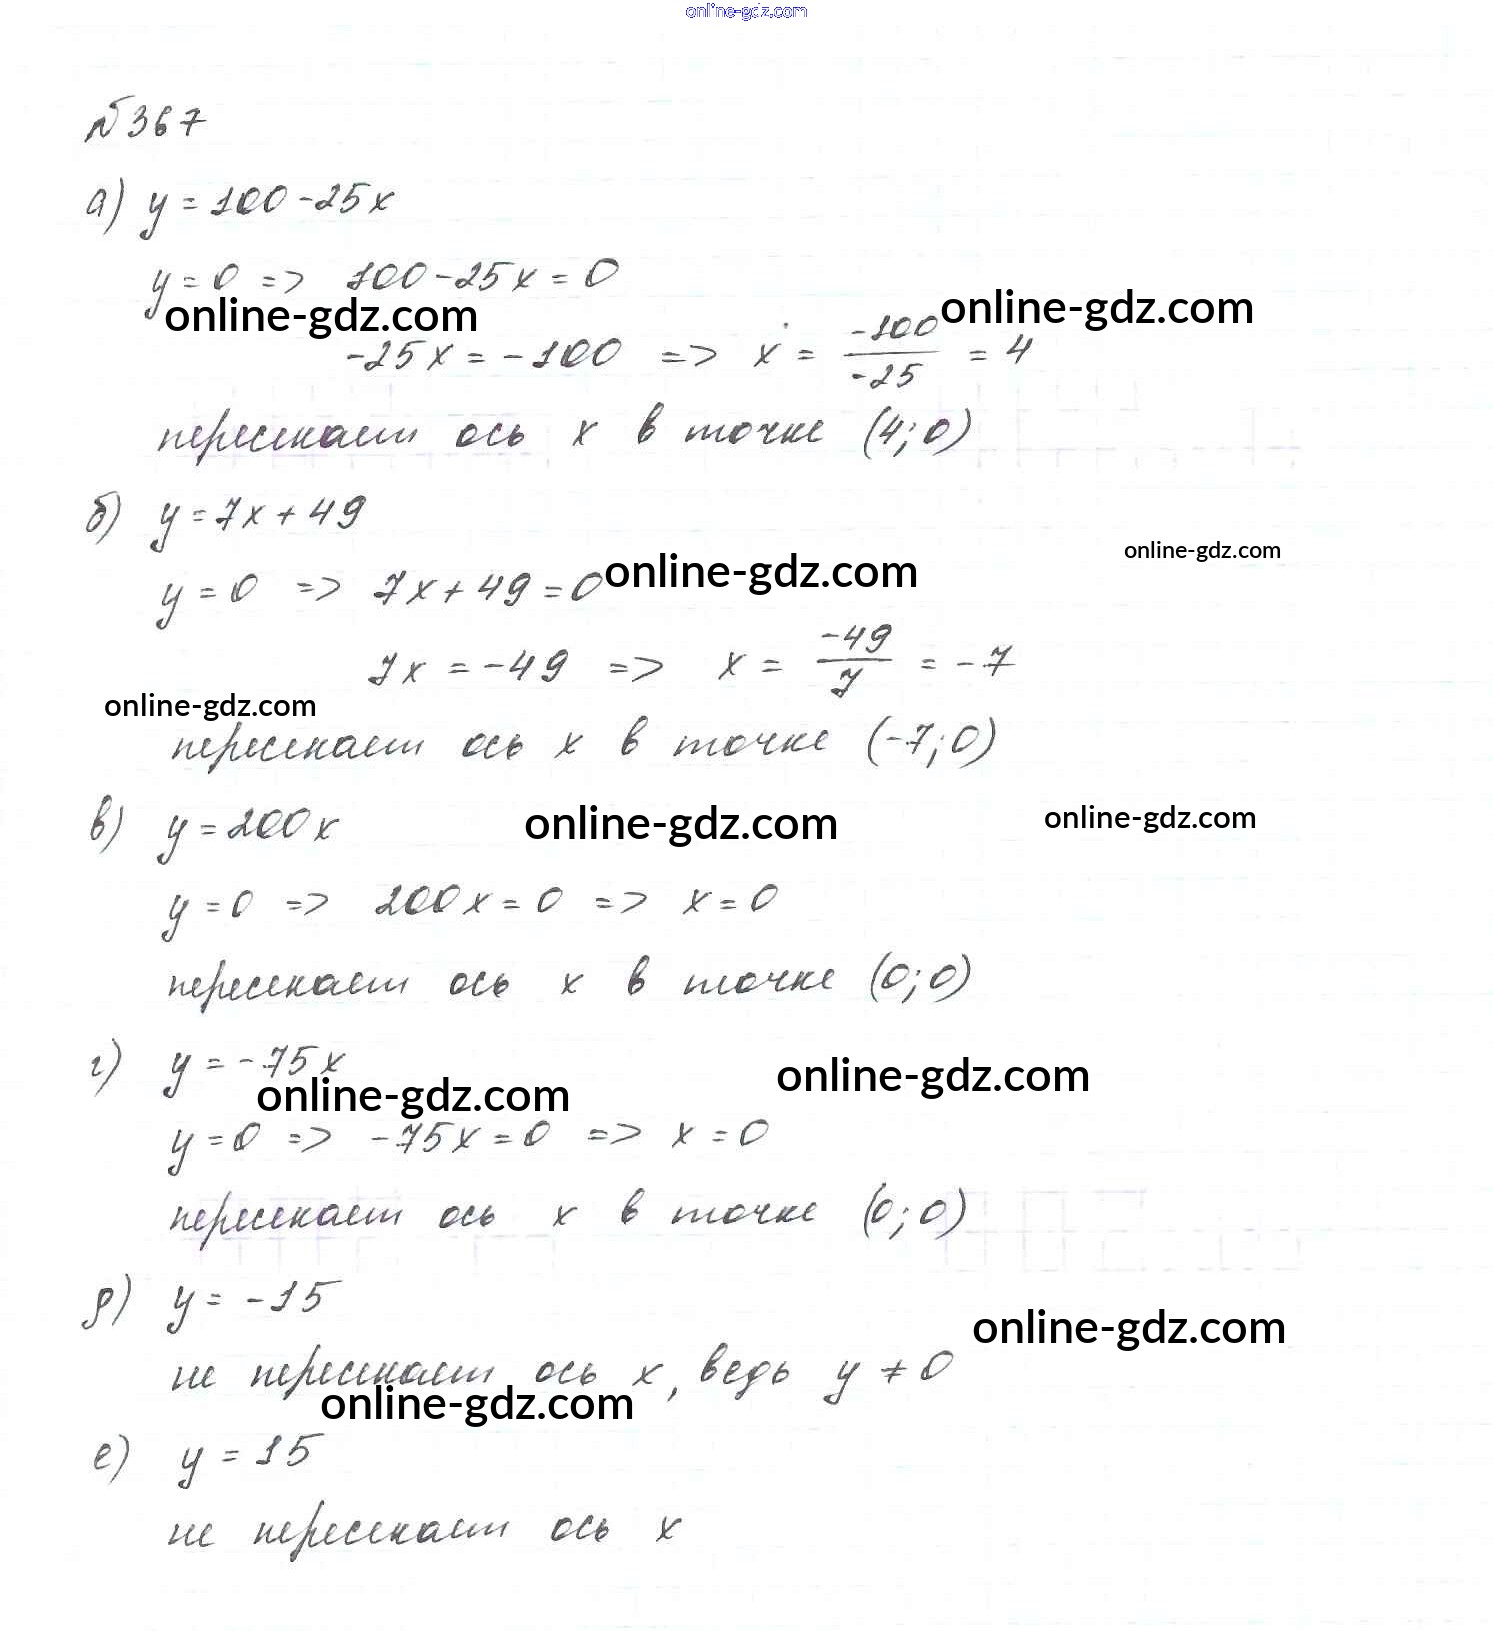 online-gdz.com
№367
а) y = 100 - 25x
y = 0 => 100 - 25x = 0
online-gdz.com
online-gdz.com
-25x = -100 => x = -100/-25 = 4
пересекает ось x в точке (4; 0)
б) y = 7x + 49
online-gdz.com
y = 0 => 7x + 49 = 0
online-gdz.com
7x = -49 => x = -49/7 = -7
online-gdz.com
пересекает ось x в точке (-7; 0)
в) y = 200x
online-gdz.com
online-gdz.com
y = 0 => 200x = 0 => x = 0
пересекает ось x в точке (0; 0)
г) y = -75x
online-gdz.com
online-gdz.com
y = 0 => -75x = 0 => x = 0
пересекает ось x в точке (0; 0)
д) y = -15
online-gdz.com
не пересекает ось x, ведь y ≠ 0
online-gdz.com
е) y = 15
не пересекает ось x